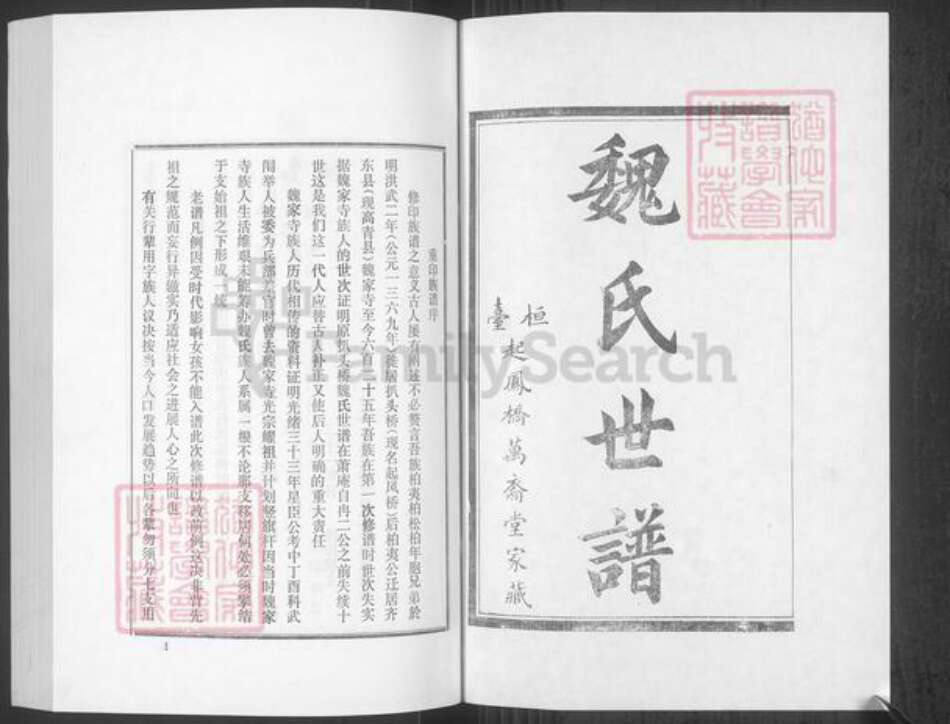 魏氏世譜
桓臺起鳳橋萬喬堂家藏
遒化家譜學會收藏
重印族谱序
修印族谱之意义古人屡有阐述不必赘言吾族柏夷柏松柏年胞兄弟於
明洪武二年(公元一三六九年)徙居扒头桥(现名起凤桥)后柏夷公迁居齐
东县(现高青县)魏家寺至今六百二十五年吾族在第一次修谱时世次失实
据魏家寺族人的世次证明原扒头桥魏氏世谱在萧庵自冉二公之前失续十
世这是我们这一代人应替古人补正又使后人明确的重大责任
魏家寺族人历代相传的资料证明光绪三十三年星臣公考中丁酉科武
闱举人被委为兵部差官时曾去魏家寺光宗耀祖并计划竖旗杆因当时魏家
寺族人生活维艰未能筹办魏氏族人系属一根不论那支移居何处必须攀结
于支始祖之下形成一统
老谱凡例因受时代影响女孩不能入谱此次修谱以改前例这决非背先
祖之规范而妄行异辙实乃适应社会之进展人心之所向也
有关行辈用字族人议决按当今人口发展趋势以后各辈勿须分七支用
1
FamilySearch